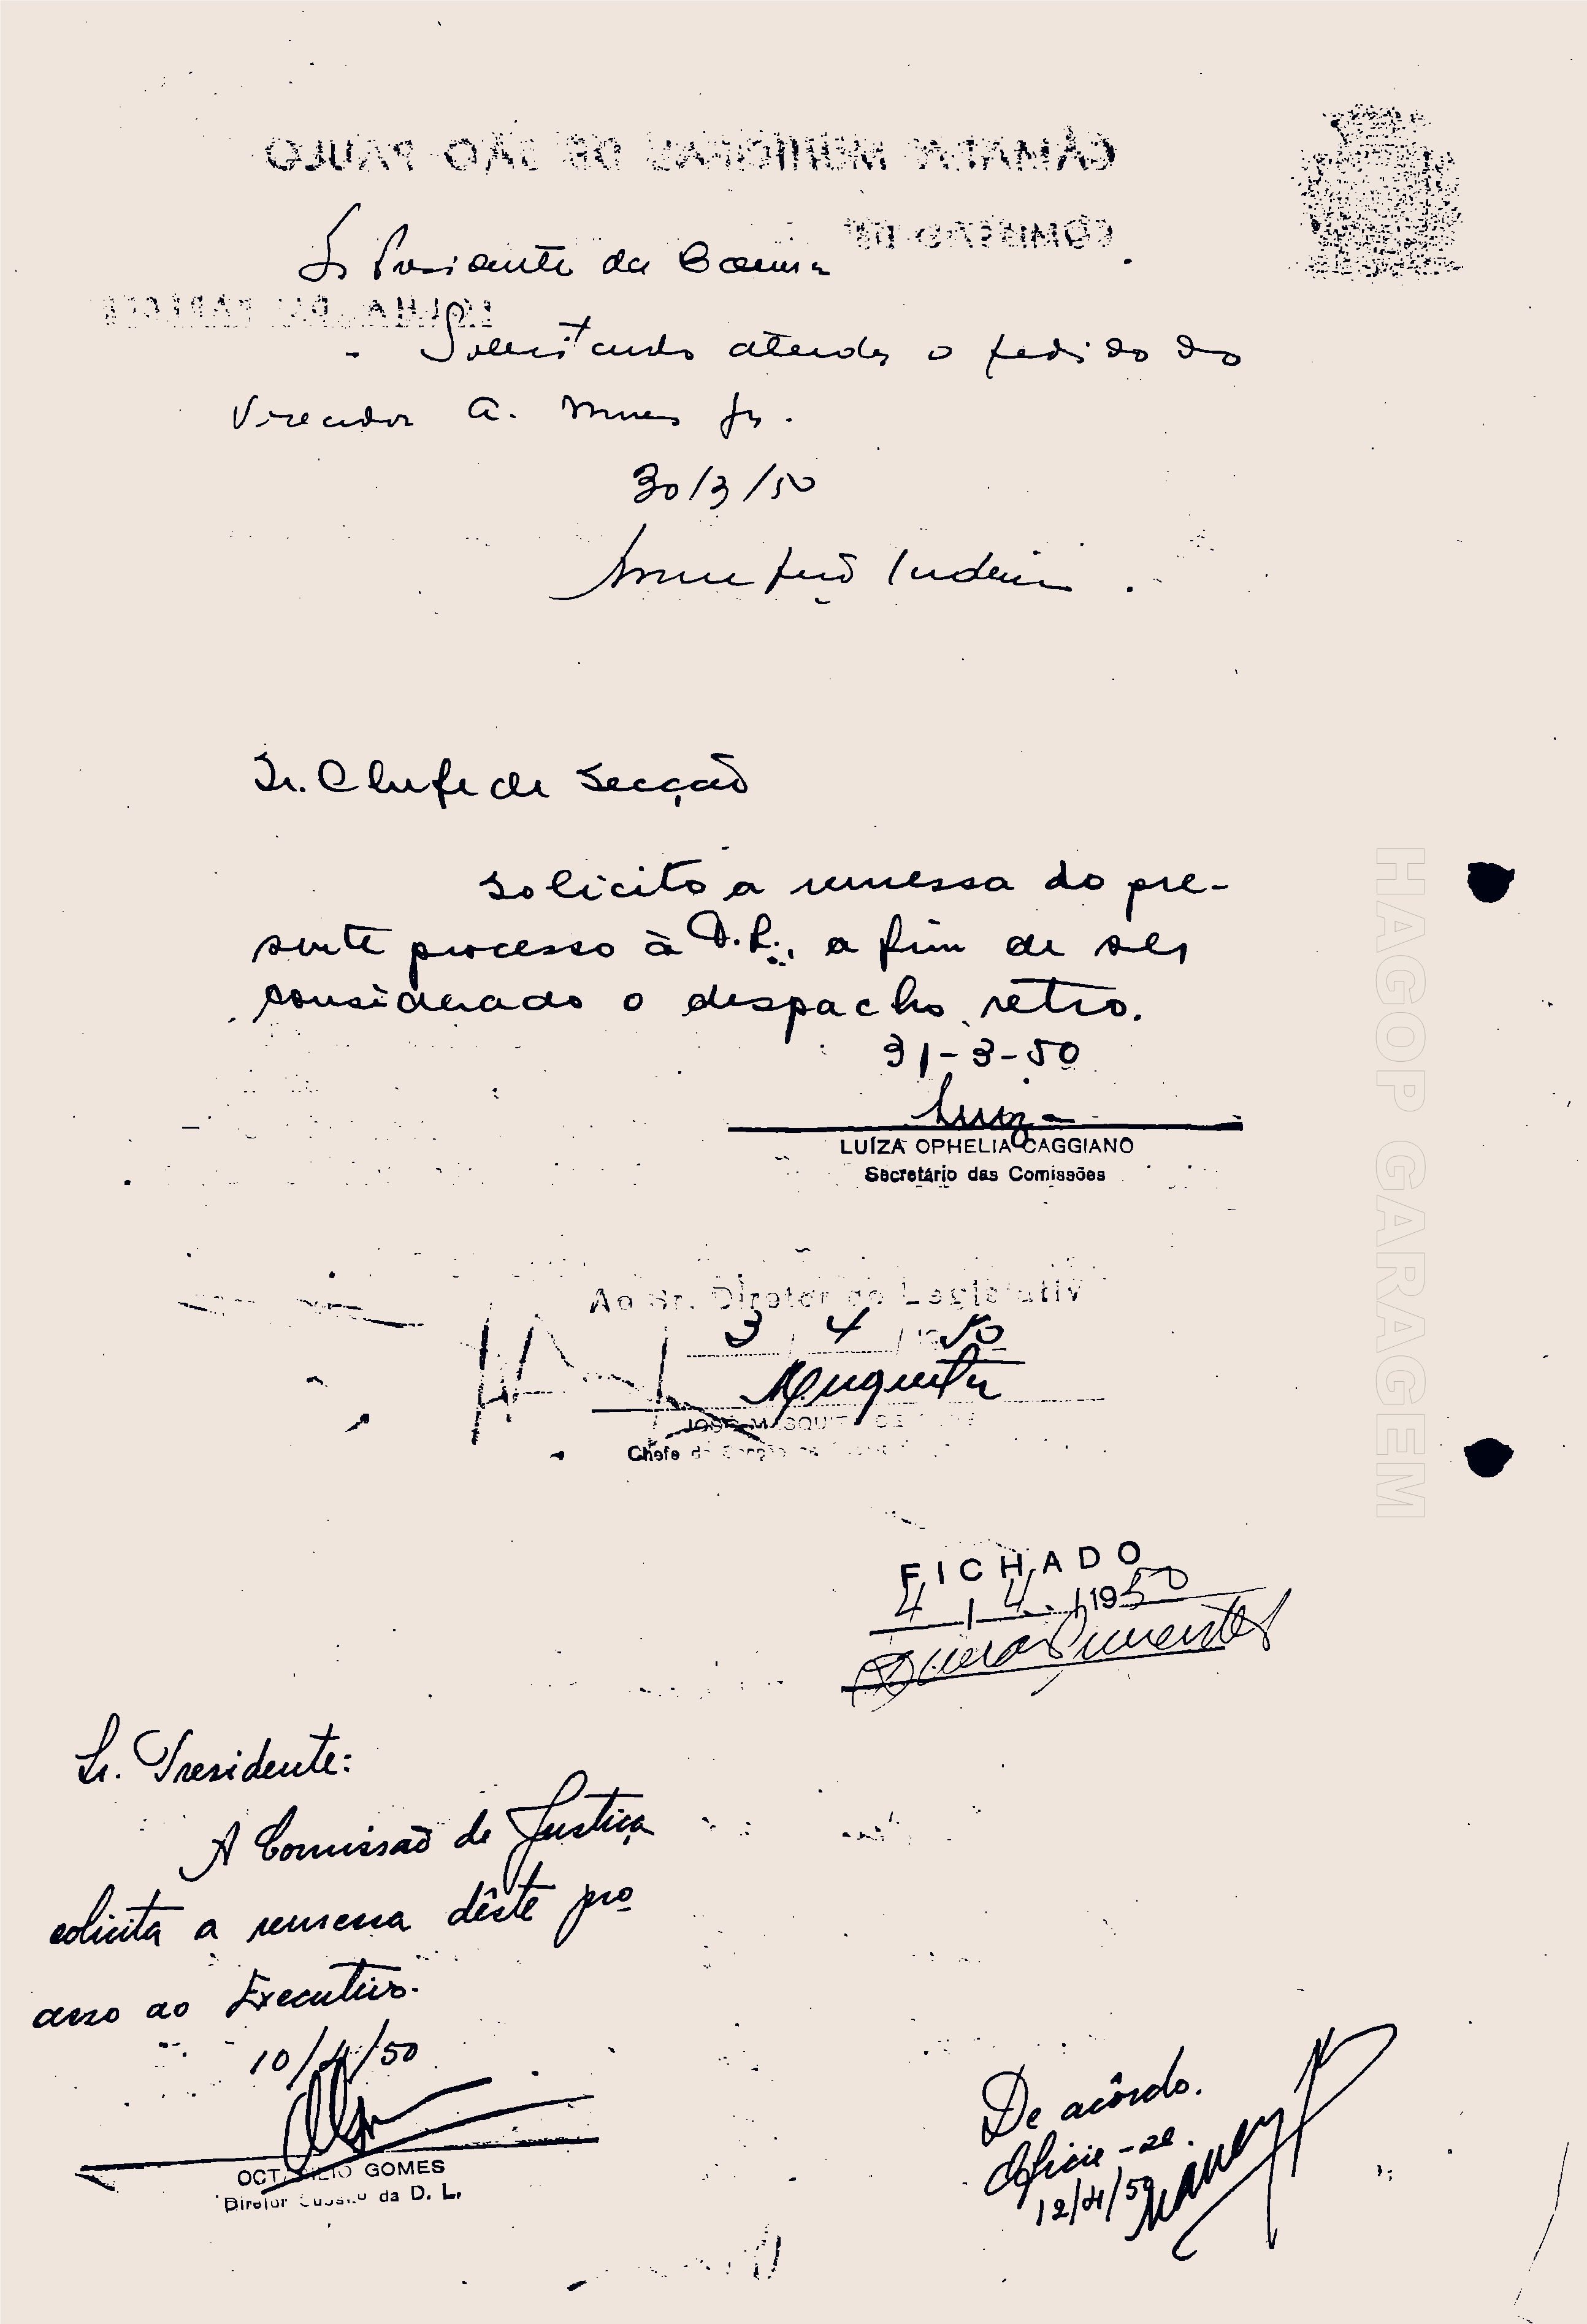 CÂMARA MUNICIPAL DE SÃO PAULO
COMISSÃO DE
Sr Presidente da
FOLHA DE PARECER
Solicitando atender o pedido do
Vereador A. Nunes Jr.
30/3/50
Sr. Chefe de Secção
Solicito a remessa do pre-
sente processo à D.L., a fim de ser
considerado o despacho retro.
31-3-50
Luiza
LUÍZA OPHELIA CAGGIANO
Secretário das Comissões
Ao Sr. Diretor do Legislativ
3 / 4 / 1950
Mesquita
JOSÉ MESQUITA DE
Chefe da Secção
FICHADO
4 / 4 / 1950
Sr. Presidente:
A Comissão de Justiça
solicita a remessa dêste pro
cesso ao Executivo.
10/4/50
OCTACILIO GOMES
Diretor Substo da D. L.
De acôrdo.
Oficie-se.
12/4/50
HAGOP GARAGEM